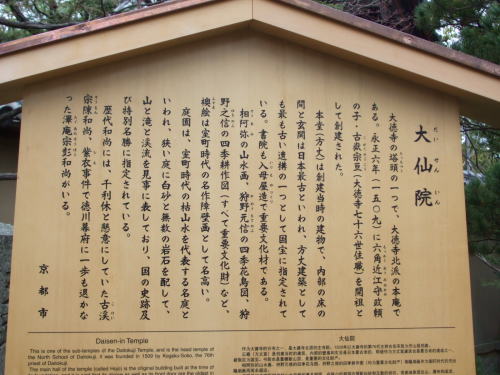 大仙院
だいせんいん
大徳寺の塔頭の一つで、大徳寺北派の本庵で
ある。永正六年(一五〇九)に六角近江守政頼
の子・古嶽宗亘(大徳寺七十六世住職)を開祖と
して創建された。
本堂(方丈)は創建当時の建物で、内部の床の
間と玄関は日本最古といわれ、方丈建築として
も最も古い遺構の一つとして国宝に指定されて
いる。書院も入母屋造で重要文化財である。
相阿弥の山水画、狩野元信の四季花鳥図、狩
野之信の四季耕作図(すべて重要文化財)など、
襖絵は室町時代の名作障壁画として名高い。
庭園は、室町時代の枯山水を代表する名庭と
いわれ、狭い庭に白砂と無数の岩石を配して、
山と滝と渓流を見事に表しており、国の史跡及
び特別名勝に指定されている。
歴代和尚には、千利休と懇意にしていた古渓
宗陳和尚、紫衣事件で徳川幕府に一歩も退かな
かった澤庵宗彭和尚がいる。
京都市
Daisen-in Temple
This is one of the sub-temples of the Daitokuji Temple, and is the head temple of
the North School of Daitokuji. It was founded in 1509 by Kogaku-Soko, the 76th
priest of Daitokuji.
The main hall of the temple (called Hojo) is the original building built at the time of
大仙院